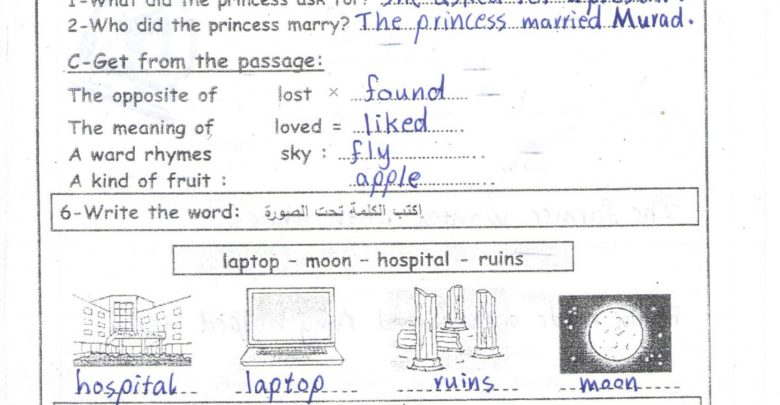 1-What did the princess ask for? She asked for
2-Who did the princess marry? The princess married Murad.
C-Get from the passage:
The opposite of lost × found
The meaning of loved = liked
A ward rhymes sky : fly
A kind of fruit : apple
6-Write the word: إكتب الكلمة تحت الصورة
laptop - moon - hospital - ruins
hospital laptop ruins moon